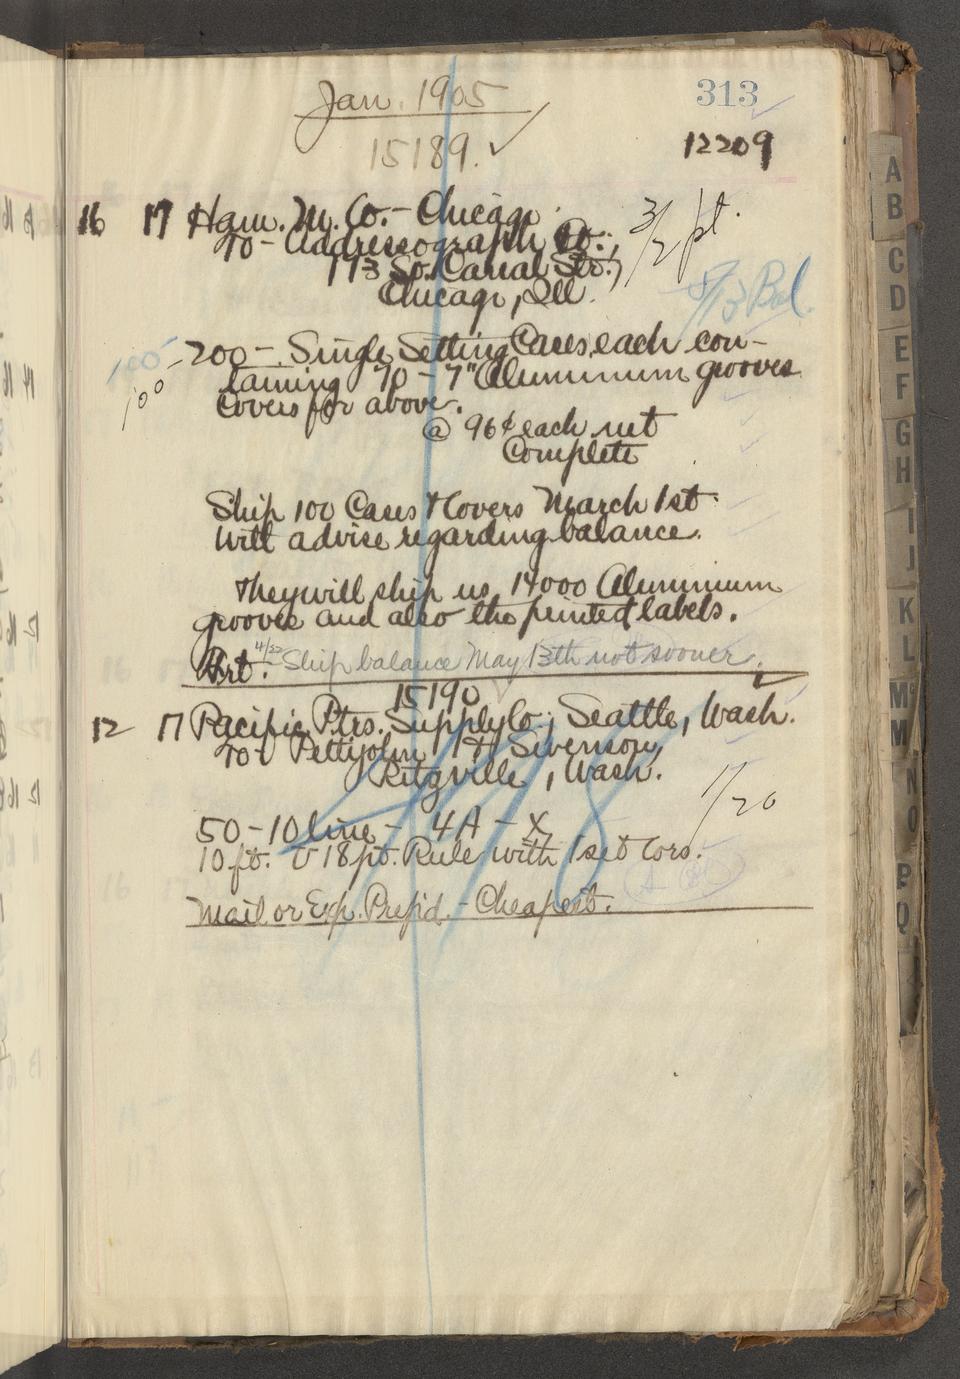 313
Jan. 1905
15189. ✓
12209
16 17 Ham. M. Co. - Chicago
To - Addressograph Co.,
173 So. Canal Str.,
Chicago, Ill.
3/2 pt.
5/13 Bal.
100
100
200 - Single Setting Cases, each con-
taining 70 - 7" Aluminum grooves
Covers for above.
@ 96¢ each net
Complete
Ship 100 Cases & Covers March 1st
Will advise regarding balance.
They will ship us 14000 Aluminium
grooves and also the printed labels.
Frt. 4/22 Ship balance May 13th not sooner.
15190
12 17 Pacific Ptrs. Supply Co., Seattle, Wash.
To - Pettijohn & Swenson,
Ritzville, Wash.
1/20
50 - 10 line - 4A - X
10 ft. 18 pt. Rule with 1 set Cors.
Mail or Exp. Prep'd. - Cheapest.
A
B
C
D
E
F
G
H
I
J
K
L
M
M
N
O
P
Q